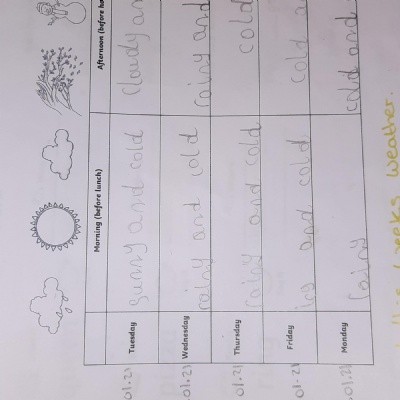 Morning (before lunch) Afternoon (before ho
.01.21 Tuesday Sunny and cold Cloudy and
.01.21 Wednesday rainy and cold rainy and
.01.21 Thursday rainy and cold cold
01.21 Friday icy and cold cold a
.01.21 Monday rainy cold and
this weeks weather.